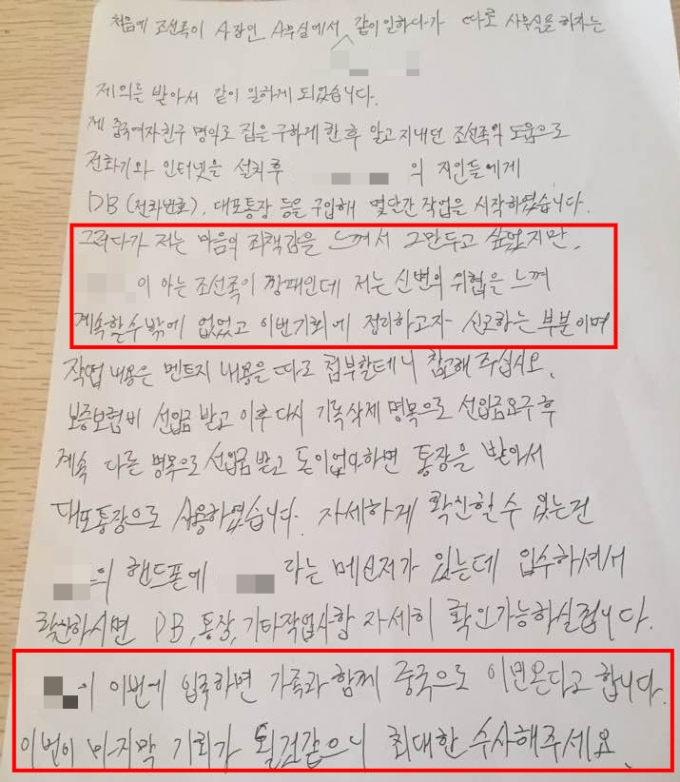 처음에 조선족이 사장인 사무실에서 같이 일하다가 따로 사무실을 하자는
제의를 받아서 같이 일하게 되었습니다.
제 중국여자친구 명의로 집을 구하게 한 후 알고지내던 조선족의 도움으로
전화기와 인터넷을 설치후 의 지인들에게
DB (전화번호), 대포통장 등을 구입해 몇달간 작업을 시작하였습니다.
그러다가 저는 마음의 죄책감을 느껴서 그만두고 싶었지만,
이 아는 조선족이 깡패인데 저는 신변의 위협을 느껴
계속할수밖에 없었고 이번기회에 정리하고자 신고하는 부분이며
작업 내용은 멘트지 내용을 따로 첨부할테니 참고해 주십시오.
보증보험비 선입금 받고 이후 다시 기록삭제 명목으로 선입금요구 후
계속 다른 명목으로 선입금 받고 돈이없다하면 통장을 받아서
대포통장으로 사용하였습니다. 자세하게 확신할수 있는건
의 핸드폰에 라는 메신저가 있는데 입수하셔서
확산하시면 DB, 통장, 기타작업사항 자세히 확인가능하실겁니다.
이 이번에 입국하면 가족과 함께 중국으로 이민온다고 합니다.
이번이 마지막 기회가 될것같으니 최대한 수사해주세요.